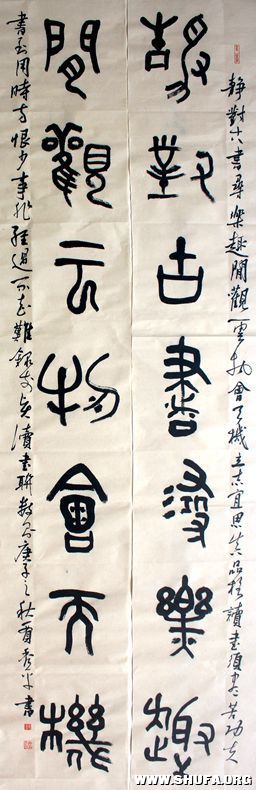 静對古書尋樂趣閒觀雲物會天機立志宜思真品格讀書須盡苦功夫
静對古書尋樂趣
閒觀云物會天機
書到用時方恨少事非經過不知難錄前賢讀書聯數庚子之秋書
WWW.SHUFA.ORG